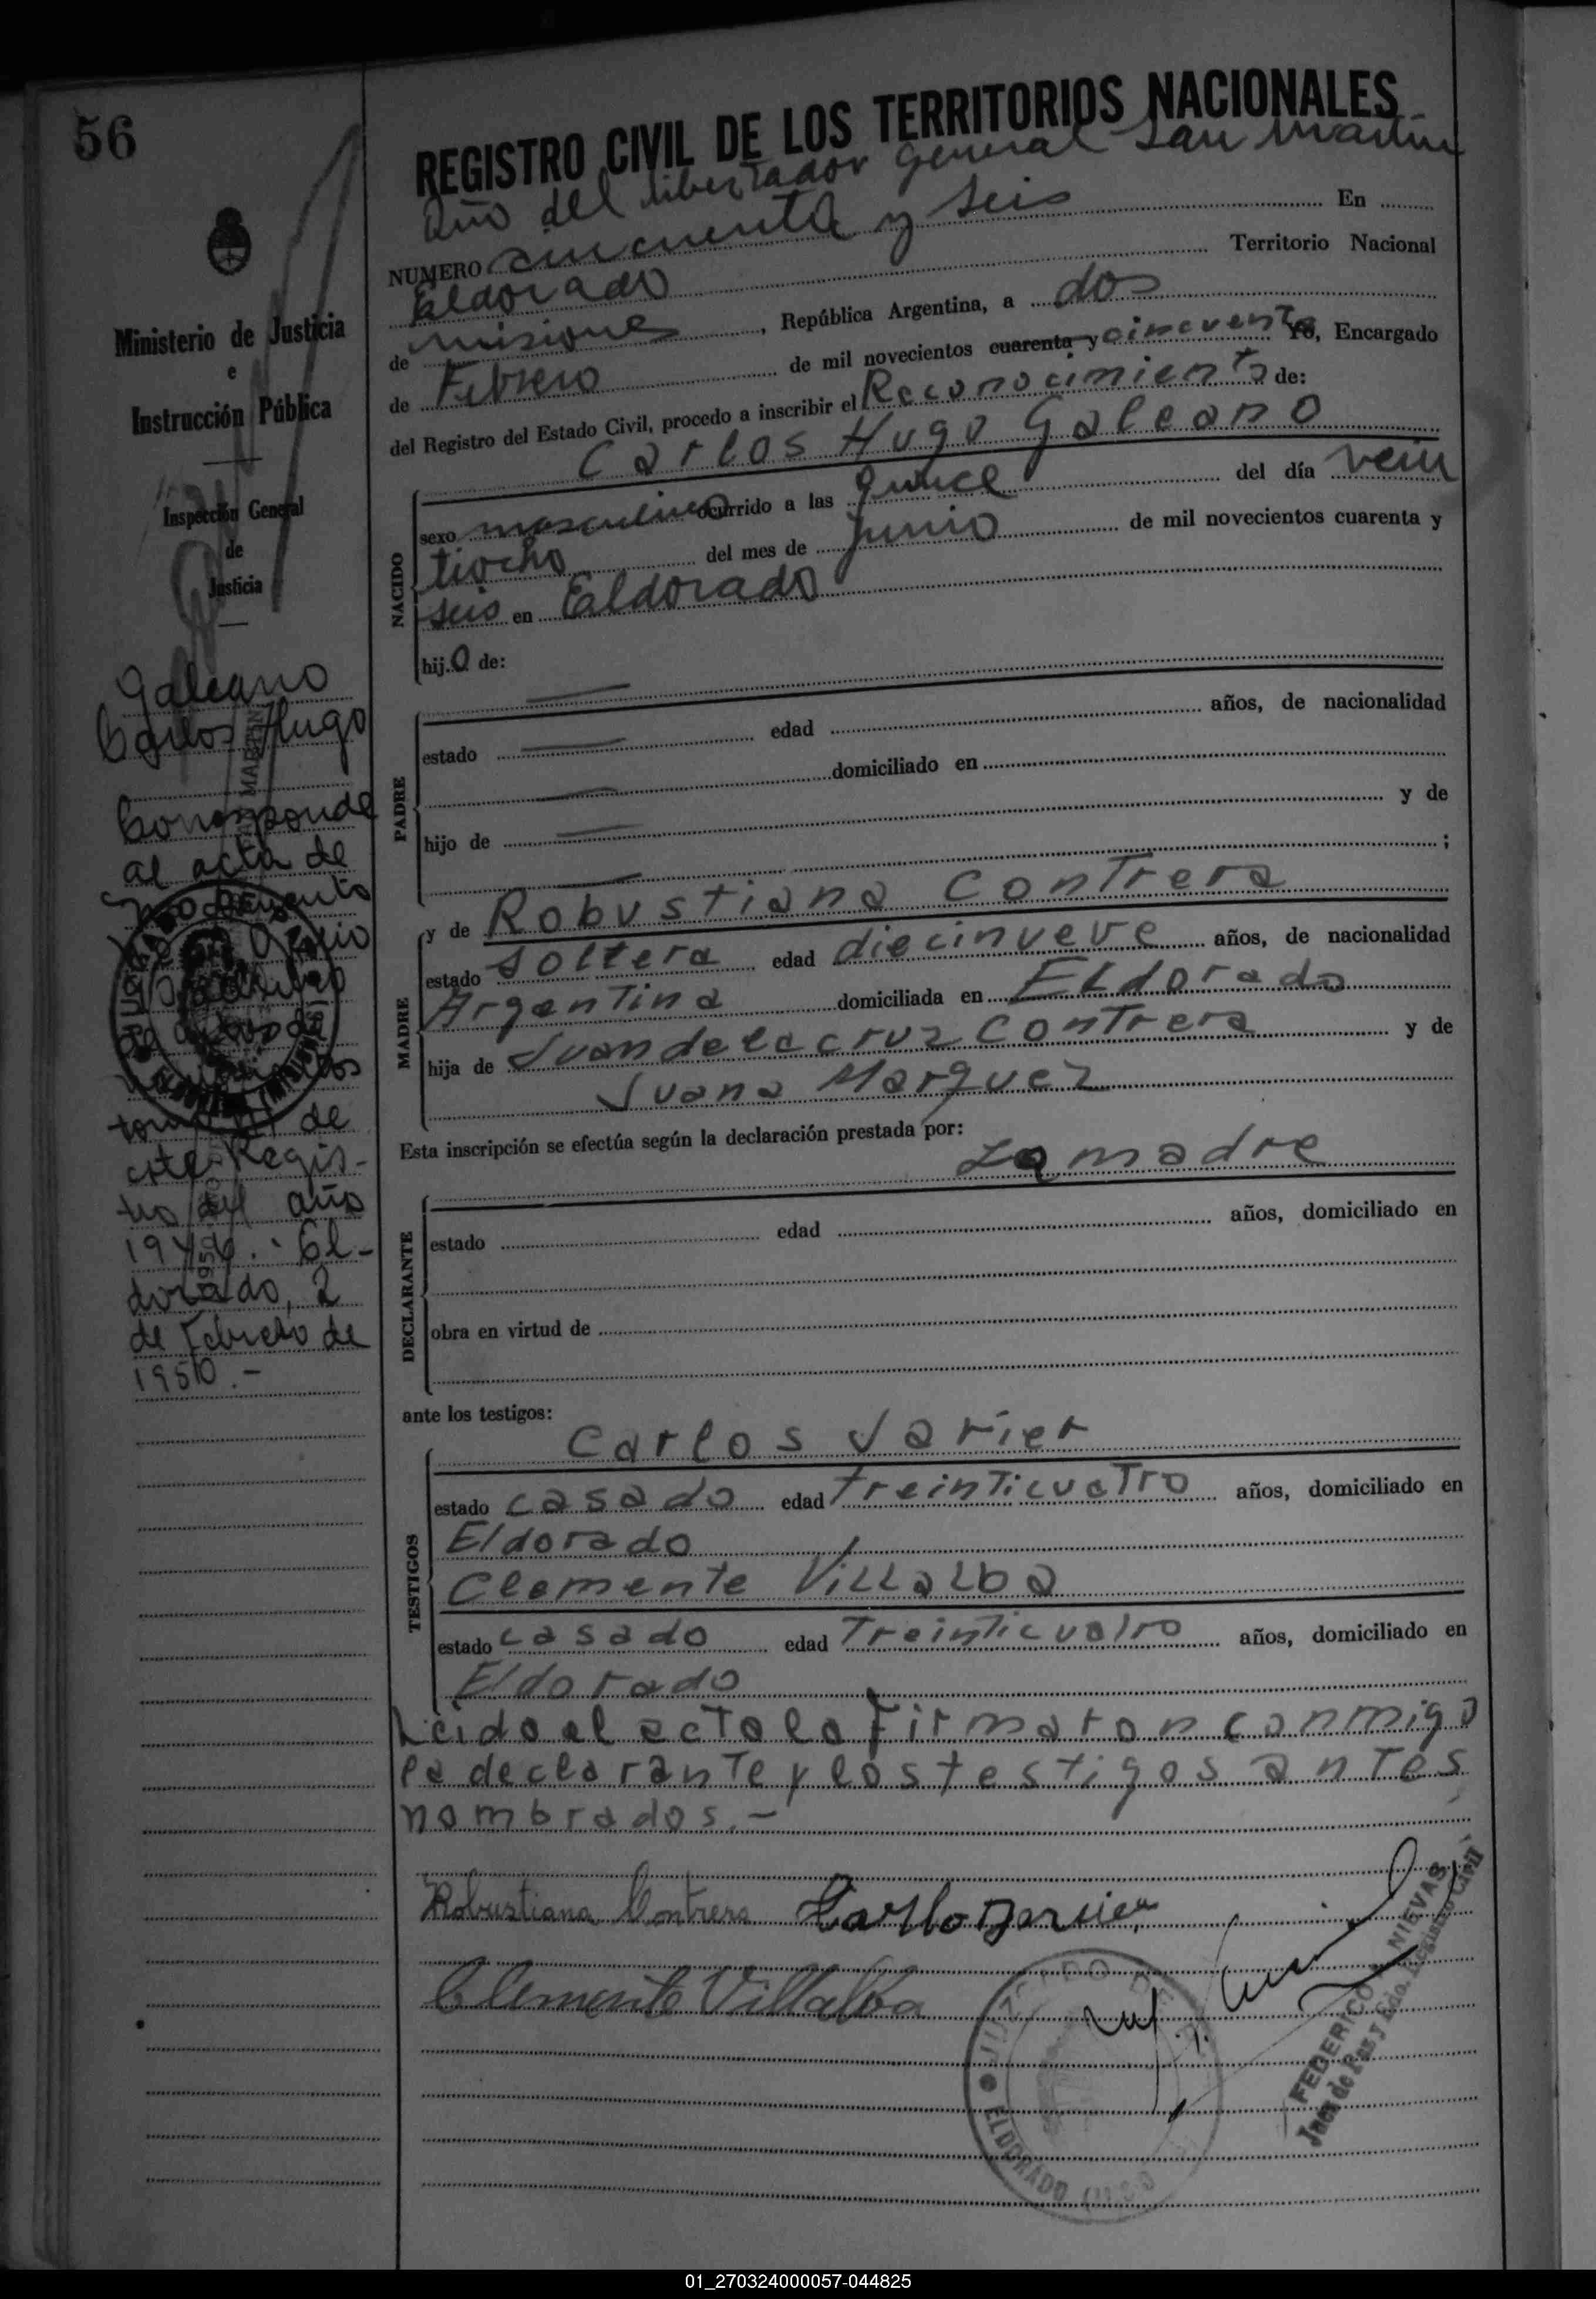 56
Ministerio de Justicia
e
Instrucción Pública
Inspección General
de
Justicia
Galeano
Carlos Hugo
Corresponde
al acta de
de
este Regis-
tro del año
1946.- El-
dorado, 2
de Febrero de
1950.-
REGISTRO CIVIL DE LOS TERRITORIOS NACIONALES
Año del libertador general San Martín
NUMERO cincuenta y seis En
Eldorado Territorio Nacional
de misiones, República Argentina, a dos
de Febrero de mil novecientos cuarenta y cincuenta Yo, Encargado
del Registro del Estado Civil, procedo a inscribir el Reconocimiento de:
Carlos Hugo Galeano
NACIDO
sexo masculino ocurrido a las quince del día vein
tiocho del mes de Junio de mil novecientos cuarenta y
seis en Eldorado
hijo de:
PADRE
estado edad años, de nacionalidad
domiciliado en
hijo de y de
;
MADRE
y de Robustiana Contrera
estado soltera edad diecinueve años, de nacionalidad
Argentina domiciliada en ELdorado
hija de Juan de la cruz Contrera y de
Juana Marquez
Esta inscripción se efectúa según la declaración prestada por:
La madre
DECLARANTE
estado edad años, domiciliado en
obra en virtud de
ante los testigos:
TESTIGOS
Carlos Jarier
estado casado edad treinticuatro años, domiciliado en
Eldorado
Clemente ViLLaLba
estado casado edad Treinticuatro años, domiciliado en
Eldorado
Leida el acta la firmaron conmigo
la declarante y los testigos antes
nombrados.-
Robustiana Contrera
Clemente Villalba
JUZGADO DE PAZ
ELDORADO
FEDERICO NIEVAS
Juez de Paz y Edo. Registro Civil
01_270324000057-044825